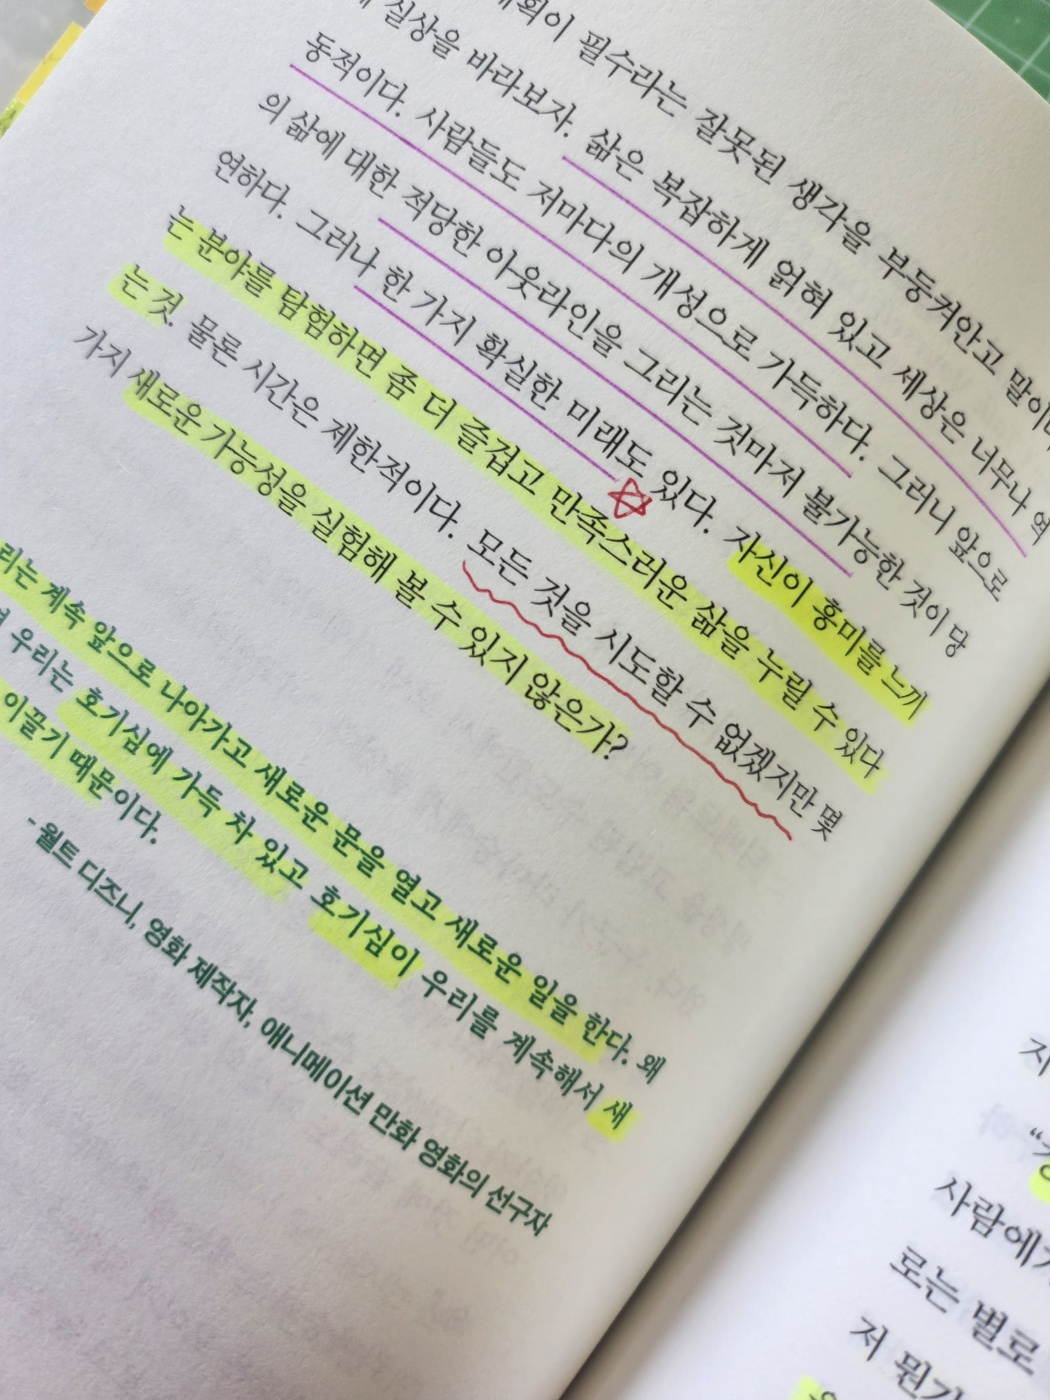 필수라는 잘못된 생각을 부둥켜안고 말이
실상을 바라보자. 삶은 복잡하게 얽혀 있고 세상은 너무나 역
동적이다. 사람들도 저마다의 개성으로 가득하다. 그러니 앞으로
의 삶에 대한 적당한 아웃라인을 그리는 것마저 불가능한 것이 당
연하다. 그러나 한 가지 확실한 미래도 있다. 자신이 흥미를 느끼
는 분야를 탐험하면 좀 더 즐겁고 만족스러운 삶을 누릴 수 있다
는 것. 물론 시간은 제한적이다. 모든 것을 시도할 수 없겠지만 몇
가지 새로운 가능성을 실험해 볼 수 있지 않은가?
리는 계속 앞으로 나아가고 새로운 문을 열고 새로운 일을 한다. 왜
우리는 호기심에 가득 차 있고 호기심이 우리를 계속해서 새
이끌기 때문이다.
- 월트 디즈니, 영화 제작자, 애니메이션 만화 영화의 선구자
사람에게
로는 별로
저 뭔가